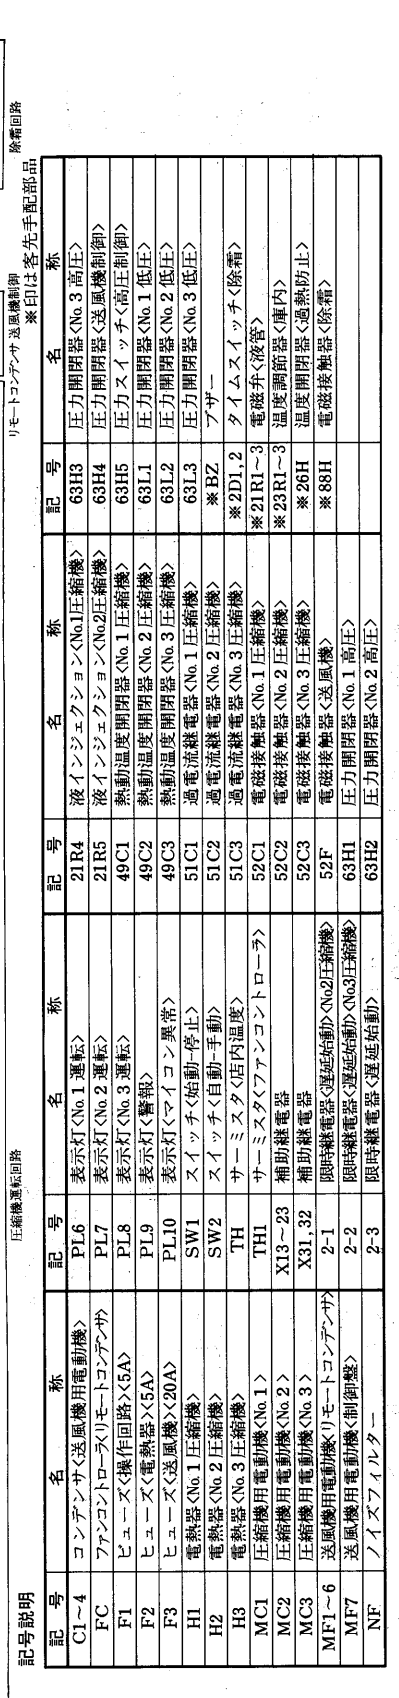 圧縮機運転回路
リモートコンデンサ送風機制御
除霜回路
記号説明
※印は客先手配部品
記号 名称 記号 名称 記号 名称 記号 名称
C1～4 コンデンサ<送風機用電動機> PL6 表示灯<No.1運転> 21R4 液インジェクション<No.1圧縮機> 63H3 圧力開閉器<No.3高圧>
FC ファンコントローラ<リモートコンデンサ> PL7 表示灯<No.2運転> 21R5 液インジェクション<No.2圧縮機> 63H4 圧力開閉器<送風機制御>
F1 ヒューズ<操作回路><5A> PL8 表示灯<No.3運転> 49C1 熱動温度開閉器<No.1圧縮機> 63H5 圧力スイッチ<高圧制御>
F2 ヒューズ<電熱器><5A> PL9 表示灯<警報> 49C2 熱動温度開閉器<No.2圧縮機> 63L1 圧力開閉器<No.1低圧>
F3 ヒューズ<送風機><20A> PL10 表示灯<マイコン異常> 49C3 熱動温度開閉器<No.3圧縮機> 63L2 圧力開閉器<No.2低圧>
H1 電熱器<No.1圧縮機> SW1 スイッチ<始動-停止> 51C1 過電流継電器<No.1圧縮機> 63L3 圧力開閉器<No.3低圧>
H2 電熱器<No.2圧縮機> SW2 スイッチ<自動-手動> 51C2 過電流継電器<No.2圧縮機> ※BZ ブザー
H3 電熱器<No.3圧縮機> TH サーミスタ<店内温度> 51C3 過電流継電器<No.3圧縮機> ※2D1,2 タイムスイッチ<除霜>
MC1 圧縮機用電動機<No.1> TH1 サーミスタ<ファンコントローラ> 52C1 電磁接触器<No.1圧縮機> ※21R1～3 電磁弁<液管>
MC2 圧縮機用電動機<No.2> X13～23 補助継電器 52C2 電磁接触器<No.2圧縮機> ※23R1～3 温度調節器<庫内>
MC3 圧縮機用電動機<No.3> X31,32 補助継電器 52C3 電磁接触器<No.3圧縮機> ※26H 温度開閉器<過熱防止>
MF1～6 送風機用電動機<リモートコンデンサ> 2-1 限時継電器<遅延始動><No2圧縮機> 52F 電磁接触器<送風機> ※88H 電磁接触器<除霜>
MF7 送風機用電動機<制御盤> 2-2 限時継電器<遅延始動><No3圧縮機> 63H1 圧力開閉器<No.1高圧>
NF ノイズフィルター 2-3 限時継電器<遅延始動> 63H2 圧力開閉器<No.2高圧>